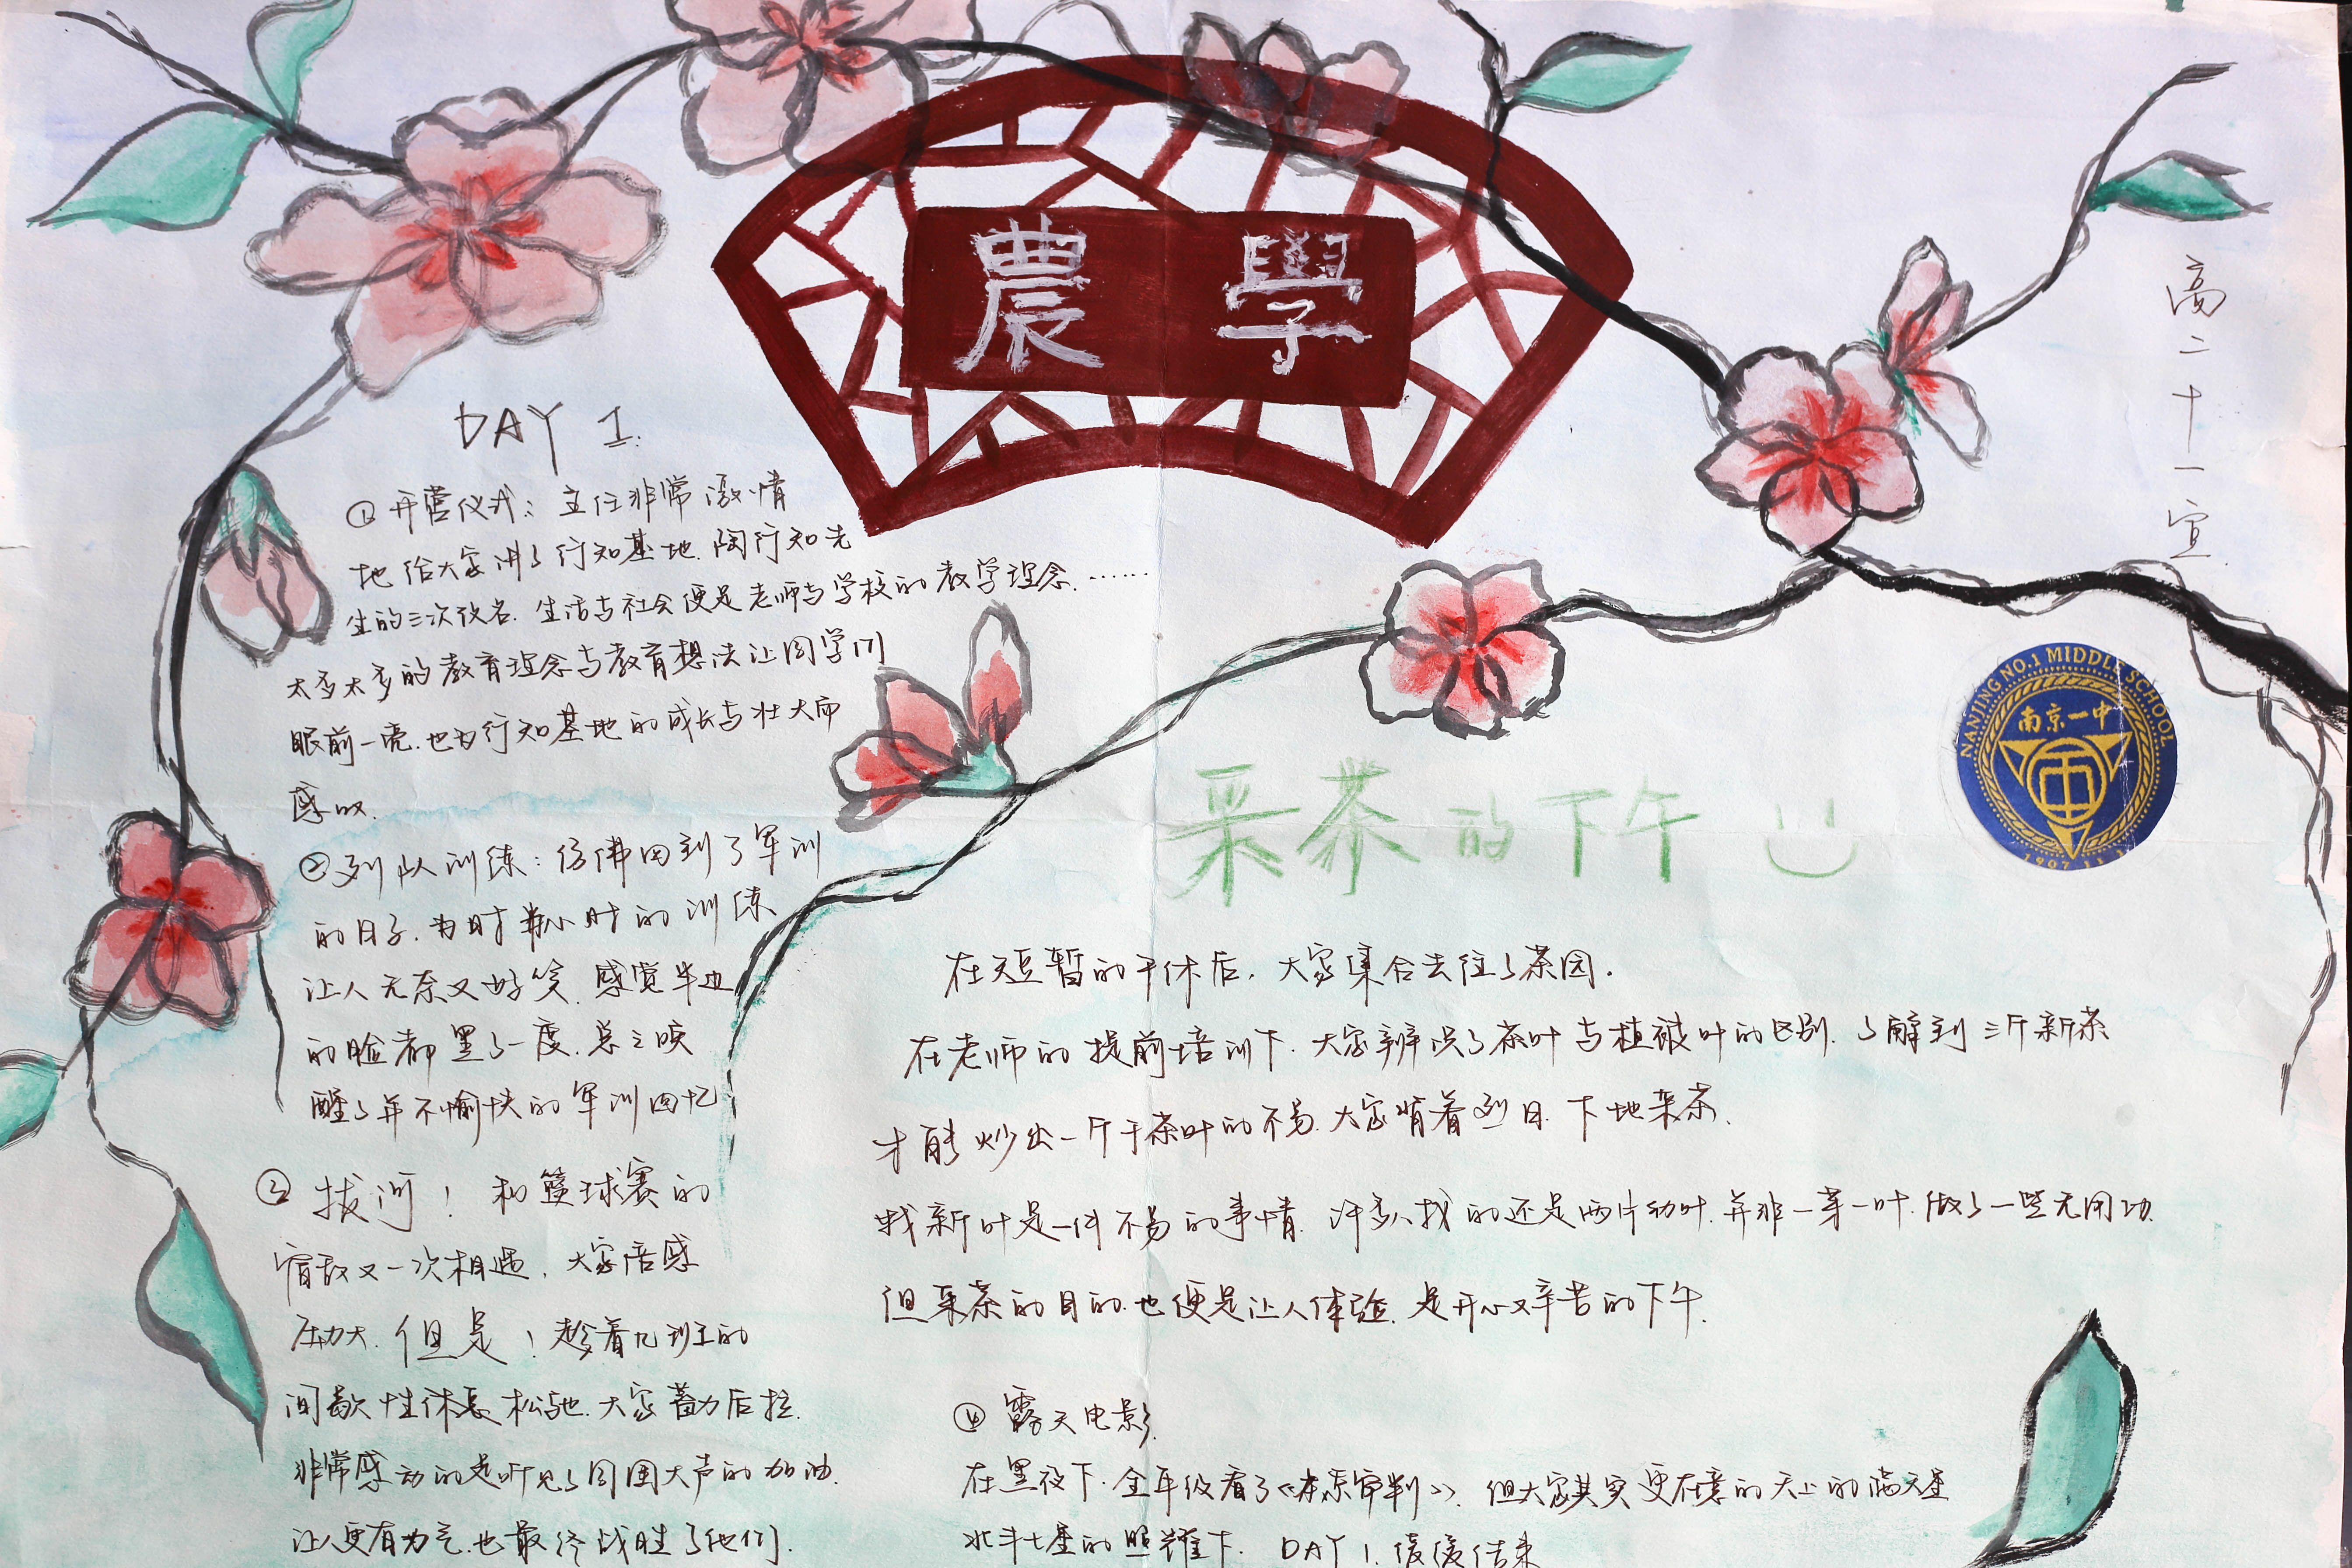 農學
高二十一宣
DAY 1.
①开营仪式:主任非常激情
地给大家讲了行知基地.陶行知先
生的三次改名.生活与社会便是老师与学校的教学理念.……
太多太多的教育理念与教育想法让同学们
眼前一亮.也为行知基地的成长与壮大而
感叹.
②列队训练:仿佛回到了军训
的日子.为时半小时的训练
让人无奈又好笑.感觉半边
的脸都黑了一度.总之唤
醒了并不愉快的军训回忆
③拔河!和篮球赛的
宿敌又一次相遇,大家倍感
压力大.但是!趁着九班的
间歇性休息松弛.大家蓄力后拉.
非常感动的是听见了周围大声的加油.
让人更有力气.也最终战胜了他们.
NANJING NO.1 MIDDLE SCHOOL
南京一中
1907
采茶的下午
在短暂的午休后.大家集合去往了茶园.
在老师的提前培训下.大家辨识了茶叶与植被叶的区别.了解到三斤新茶
才能炒出一斤干茶叶的不易.大家背着烈日.下地采茶.
找新叶是一件不易的事情.许多人找的还是两片幼叶.并非一芽一叶.做了一些无用功.
但采茶的目的.也便是让人体验.是开心又辛苦的下午.
④露天电影.
在黑夜下.全年级看了《东京审判》.但大家其实更在意的天上的满天星
北斗七星的照耀下.DAY 1.缓缓结束